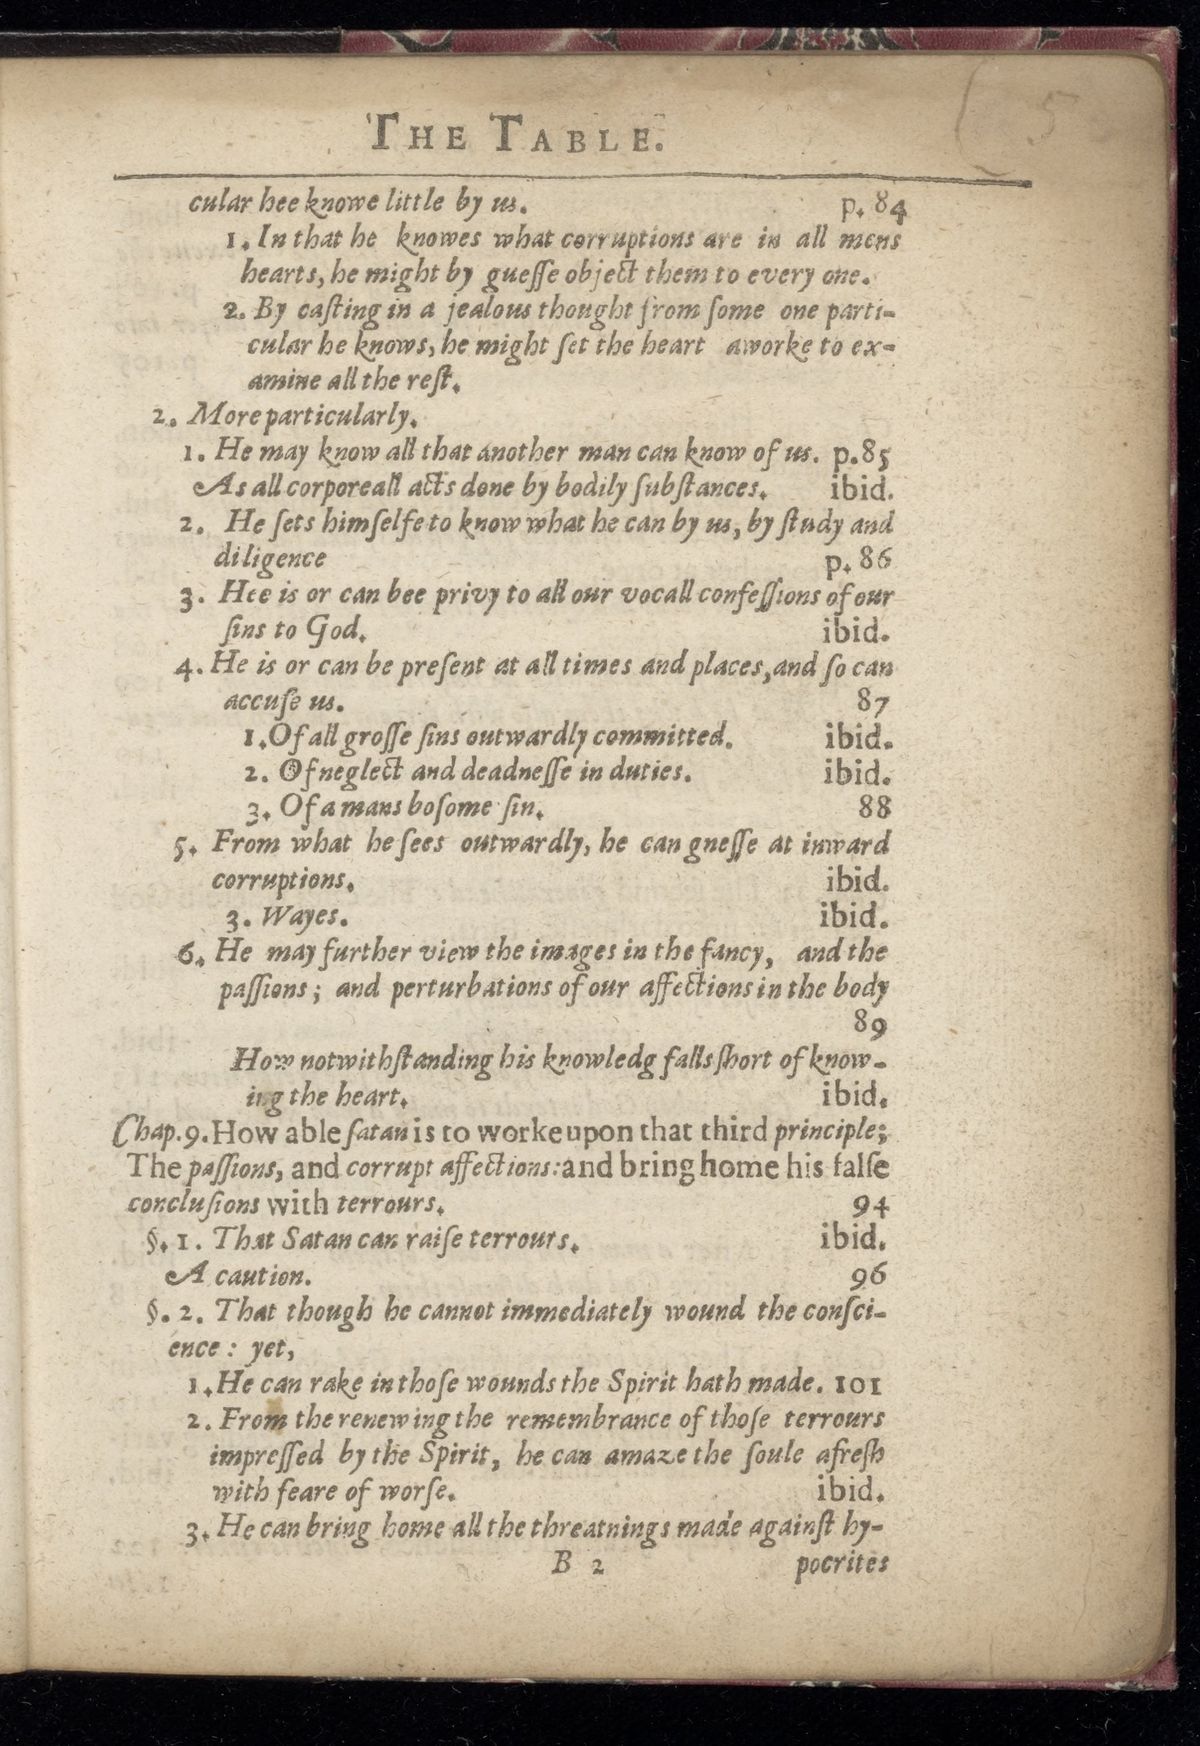 THE TABLE.
cular hee knowe little by us. p. 84
1. In that he knowes what corruptions are in all mens
hearts, he might by guesse object them to every one.
2. By casting in a jealous thought from some one parti-
cular he knows, he might set the heart aworke to ex-
amine all the rest.
2. More particularly.
1. He may know all that another man can know of us. p.85
As all corporeall acts done by bodily substances. ibid.
2. He sets himselfe to know what he can by us, by study and
diligence p. 86
3. Hee is or can bee privy to all our vocall confessions of our
sins to God. ibid.
4. He is or can be present at all times and places, and so can
accuse us. 87
1. Of all grosse sins outwardly committed. ibid.
2. Of neglect and deadnesse in duties. ibid.
3. Of a mans bosome sin. 88
5. From what he sees outwardly, he can gnesse at inward
corruptions. ibid.
3. Wayes. ibid.
6. He may further view the images in the fancy, and the
passions; and perturbations of our affections in the body
89
How notwithstanding his knowledg falls short of know-
ing the heart. ibid.
Chap. 9. How able satan is to worke upon that third principle;
The passions, and corrupt affections: and bring home his false
conclusions with terrours. 94
§. 1. That Satan can raise terrours. ibid.
A caution. 96
§. 2. That though he cannot immediately wound the consci-
ence : yet,
1. He can rake in those wounds the Spirit hath made. 101
2. From the renewing the remembrance of those terrours
impressed by the Spirit, he can amaze the soule afresh
with feare of worse. ibid.
3. He can bring home all the threatnings made against hy-
B 2 pocrites